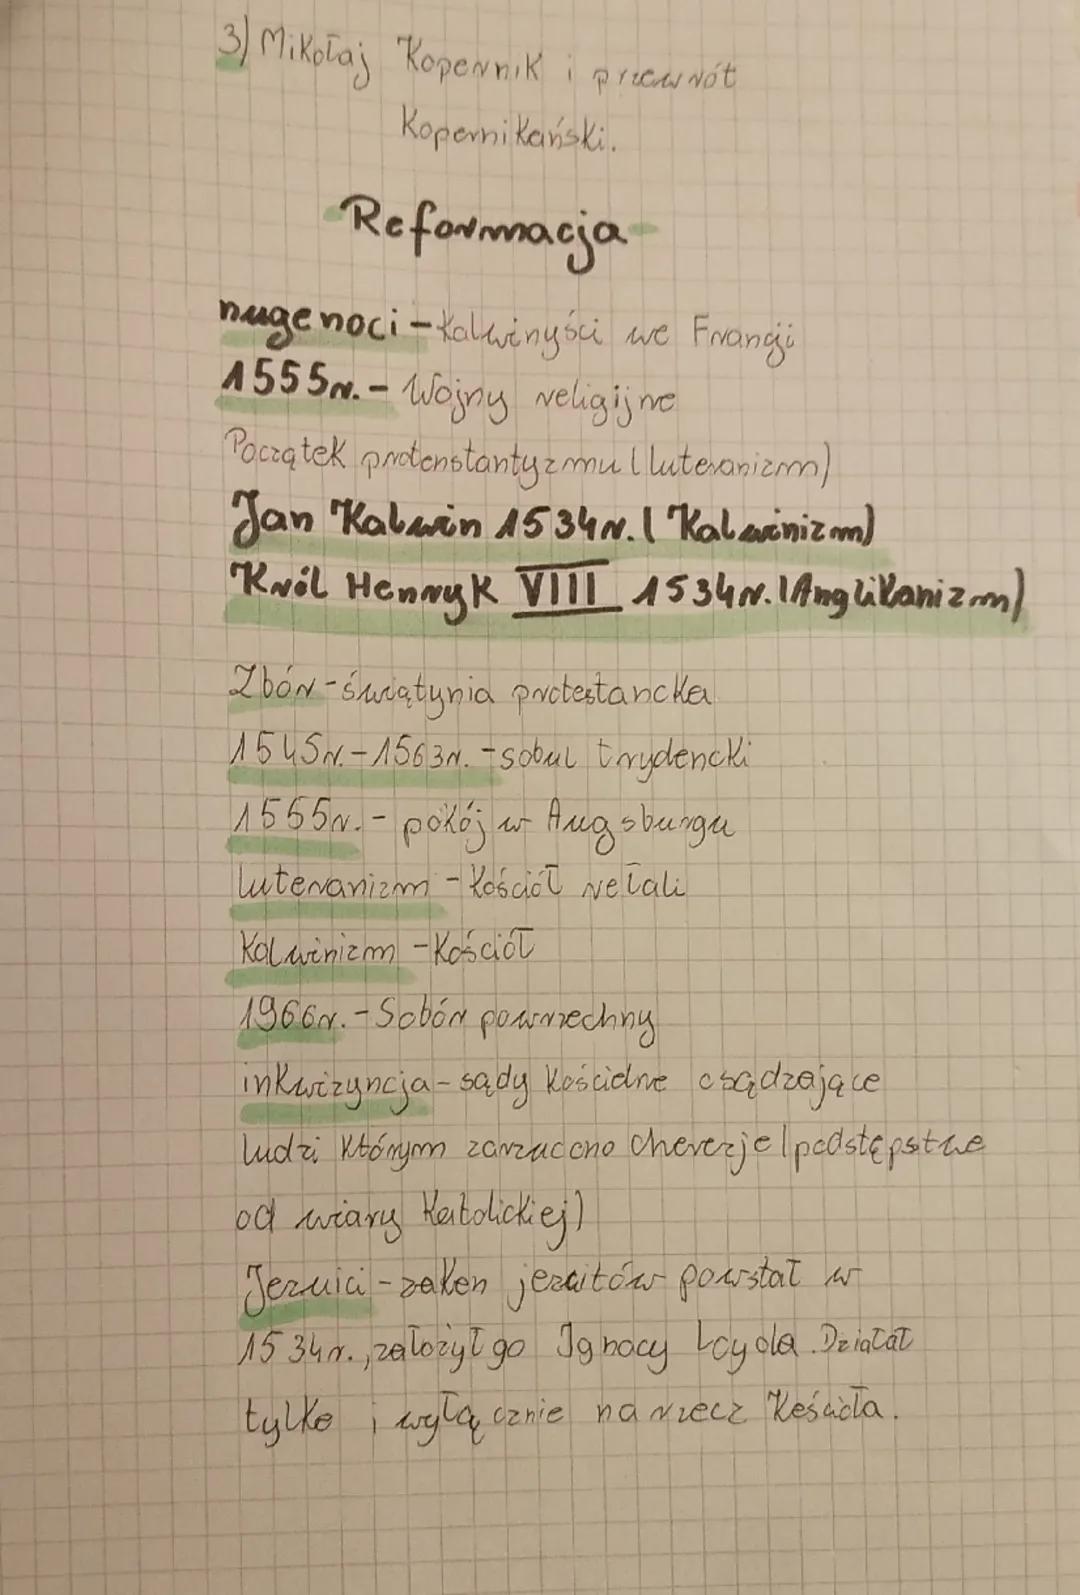 3) Mikołaj Kopernik i przewrót
Kopernikański.
Reformacja
hugenoci - Kalwinyści we Francji
1555r. - Wojny religijne
Początek protenstantyzmu (luteranizm)
Jan Kalwin 1534r. (Kalwinizm)
Król Henryk VIII 1534r. (Anglikanizm)
Zbór - świątynia protestancka
1545r. - 1563r. - sobul trydencki
1555r. - pokój w Augsburgu
luteranizm - Kościół
Kalwinizm - Kościół
1966r. - Sobór powrzechny
inkwizyncja - sądy kościelne osądzające
ludzi którym zarzucono cherezje (podstępstwe
od wiary Katolickiej)
Jezuici - zakon jezuitów powstał w
1534r., założył go Ignacy Loyola. Działał
tylko i wyłącznie na rzecz Kościoła.